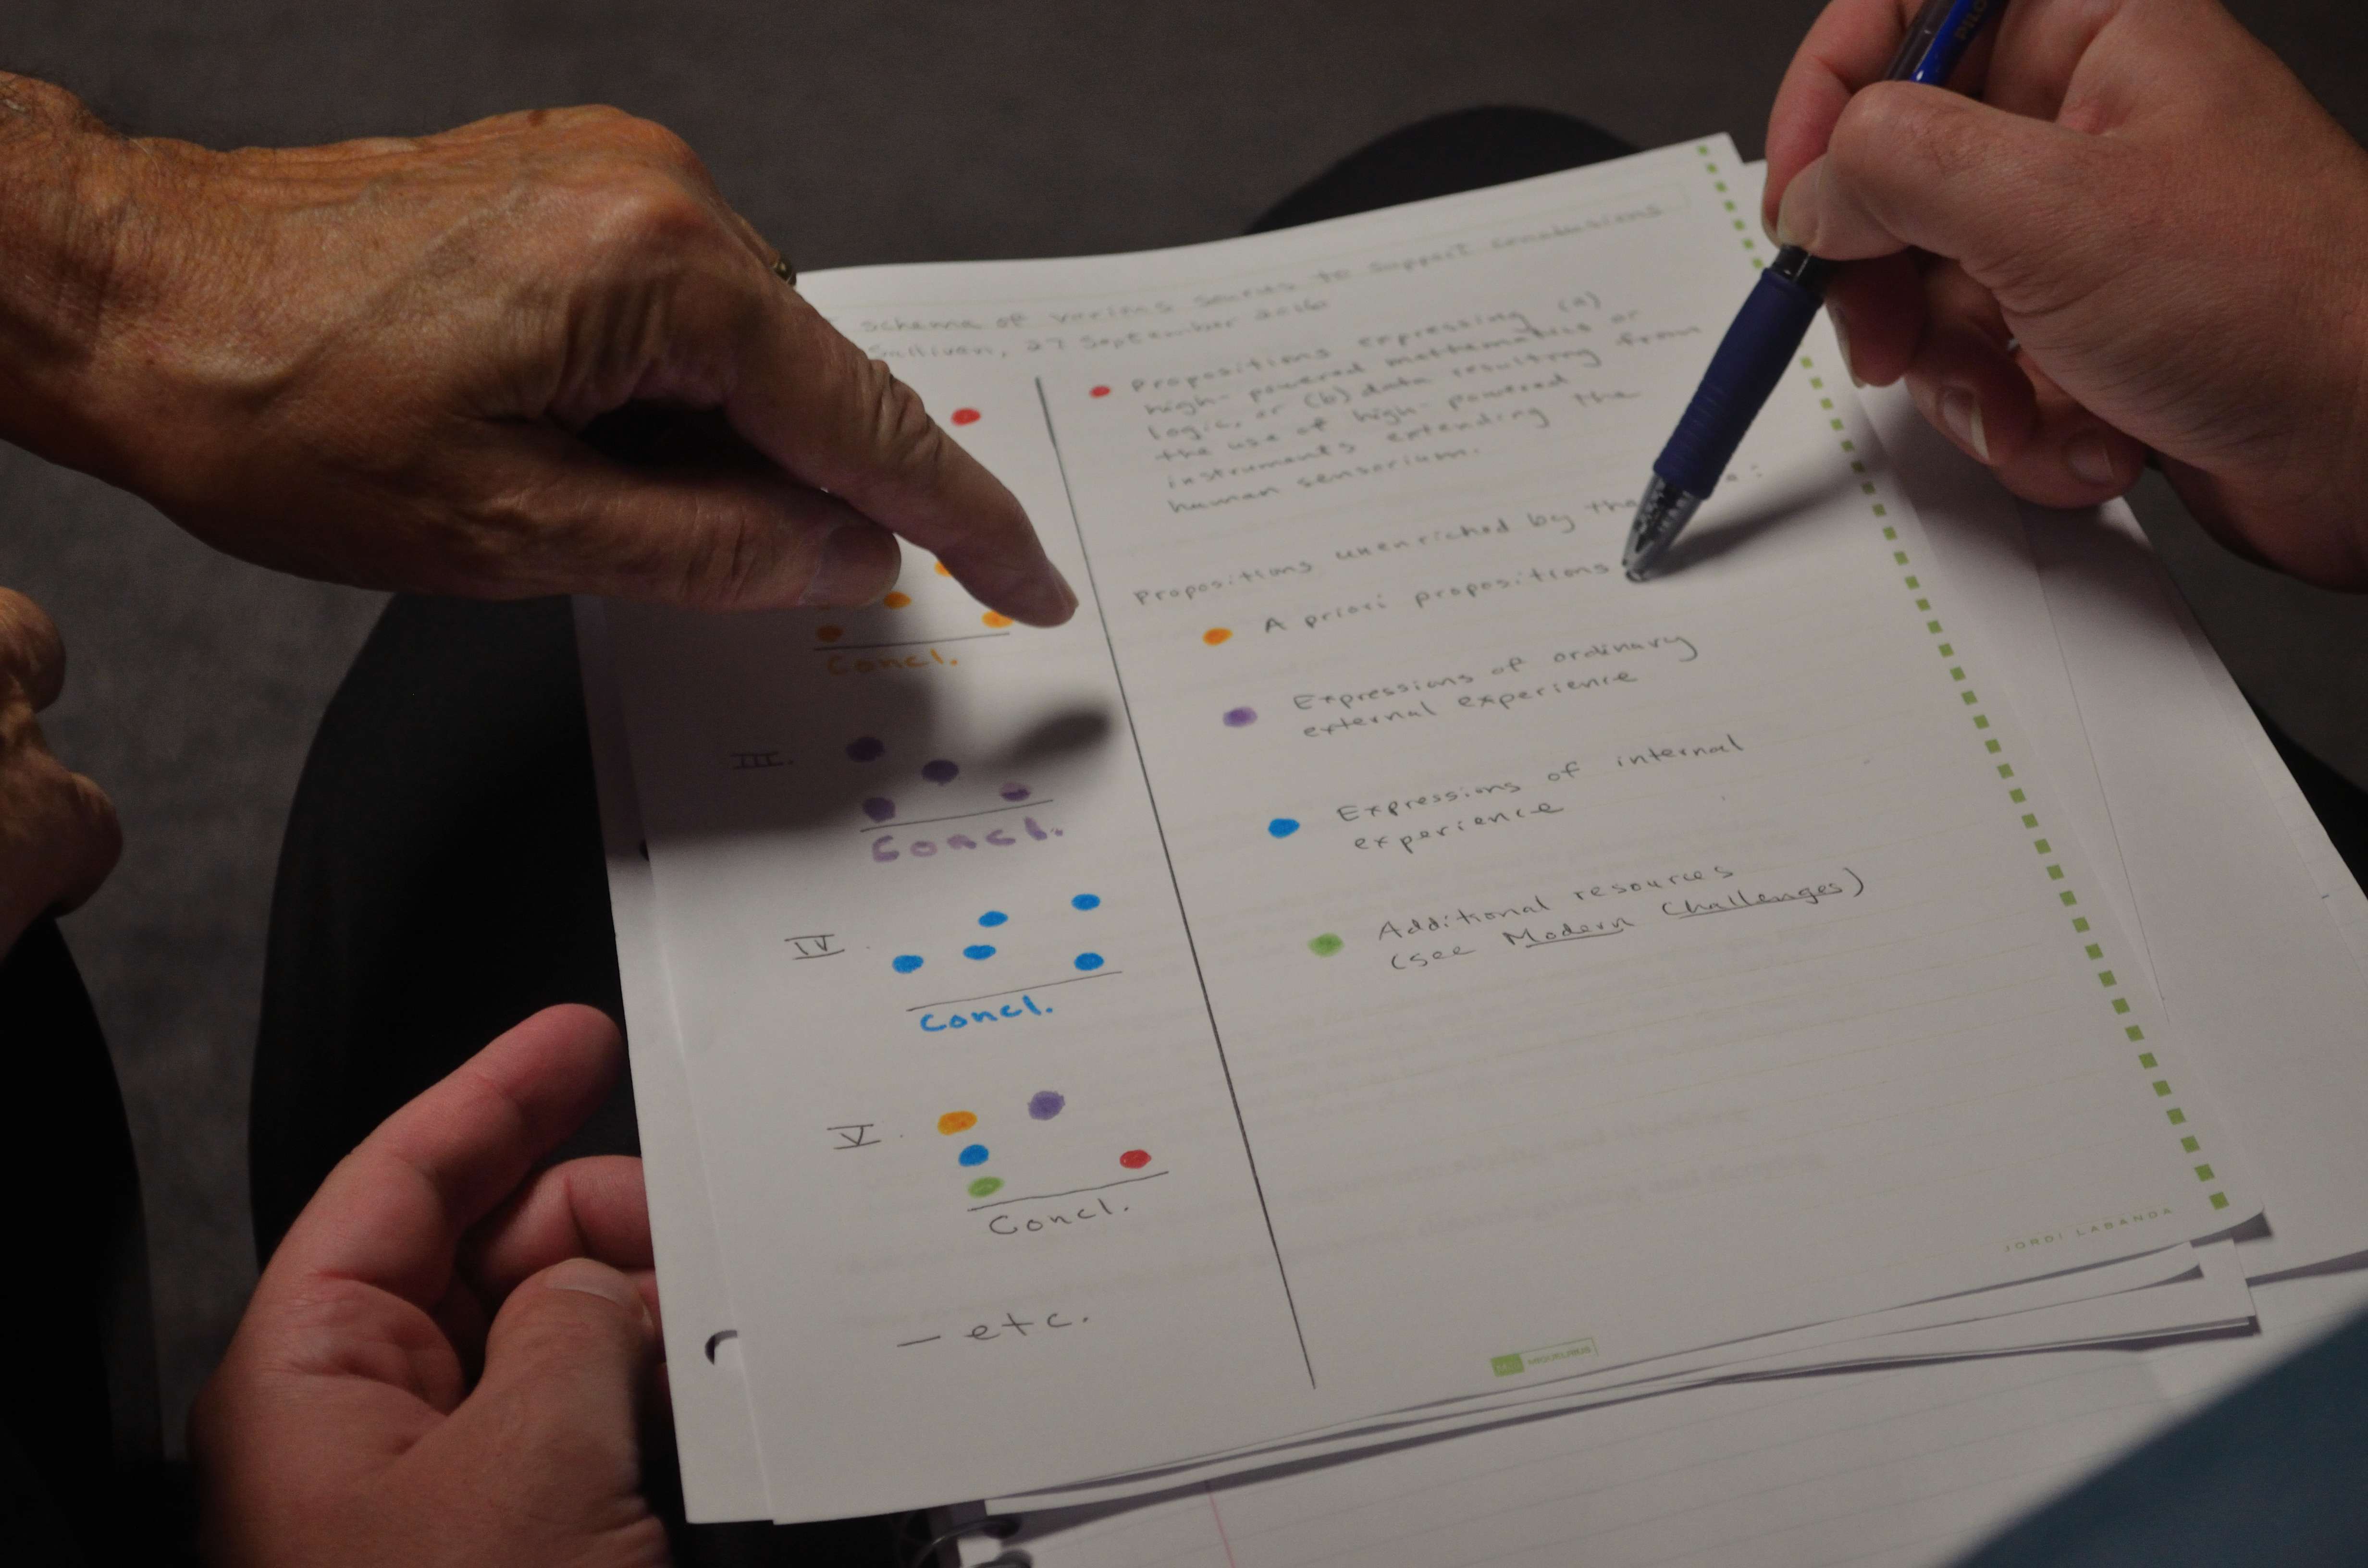 schema of various sources to support conclusions
Sullivan, 27 September 2016
Propositions expressing (a)
high-powered mathematics or
logic, or (b) data resulting from
the use of high-powered
instruments extending the
human sensorium.
Propositions unenriched by the
A priori propositions
Concl.
Expressions of ordinary
external experience
III.
Concl.
Expressions of internal
experience
IV.
Concl.
Additional resources
(see Modern Challenges)
V.
Concl.
— etc.
JORDI LABANDA
MIQUELRIUS
PILOT